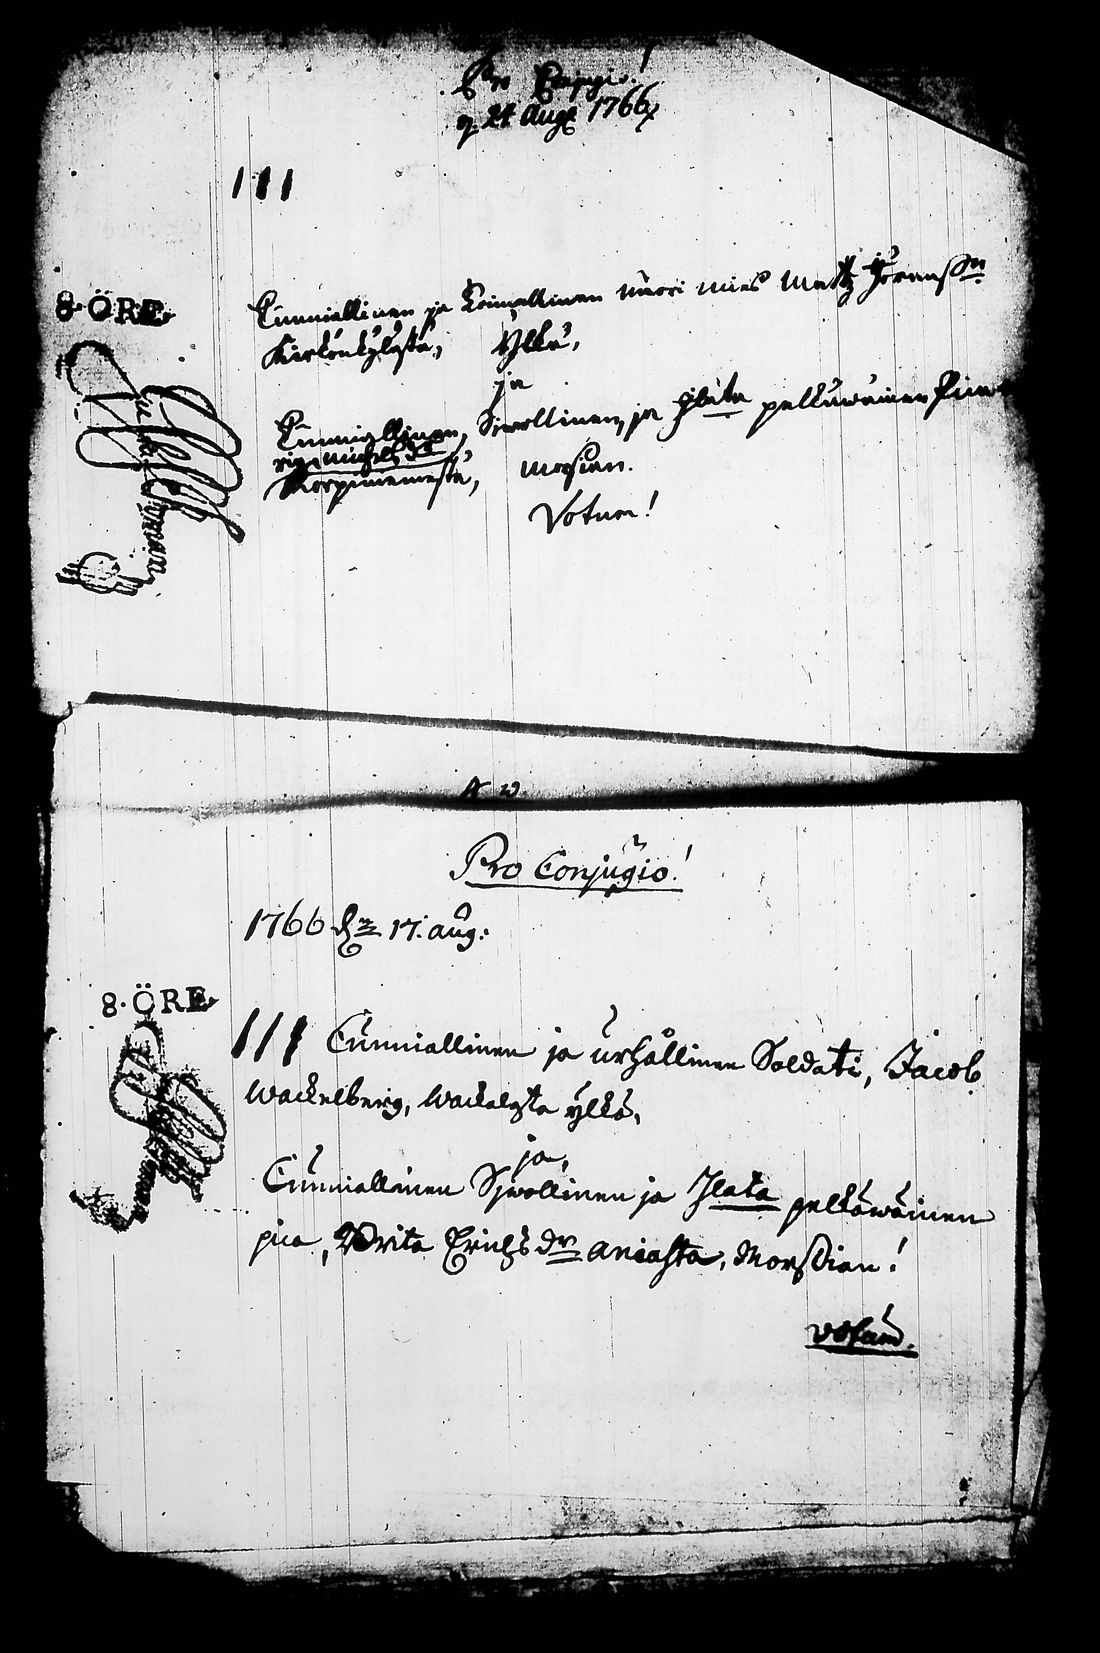 Pro Conjugio!
d. 24 Aug. 1766
111
8·ÖRE
Cunniallinen ja Toimellinen nuori mies Matz Jöransson
Kirkonkylästä, Ylkä,
ja
Cunniallinen, Siwollinen, ja Jlata pelkäwäinen Piica
Morsian.
Votum!
Pro Conjugio!
1766 d 17. aug:
8·ÖRE
111 Cunniallinen ja urhollinen Soldati, Jacob
Wackelberg, Wackalasta ylkä,
ja,
Cunniallinen Sjwollinen ja Jlata pelkäwäinen
pica, Brita Erichsdr aniasta, Morsian!
votum.